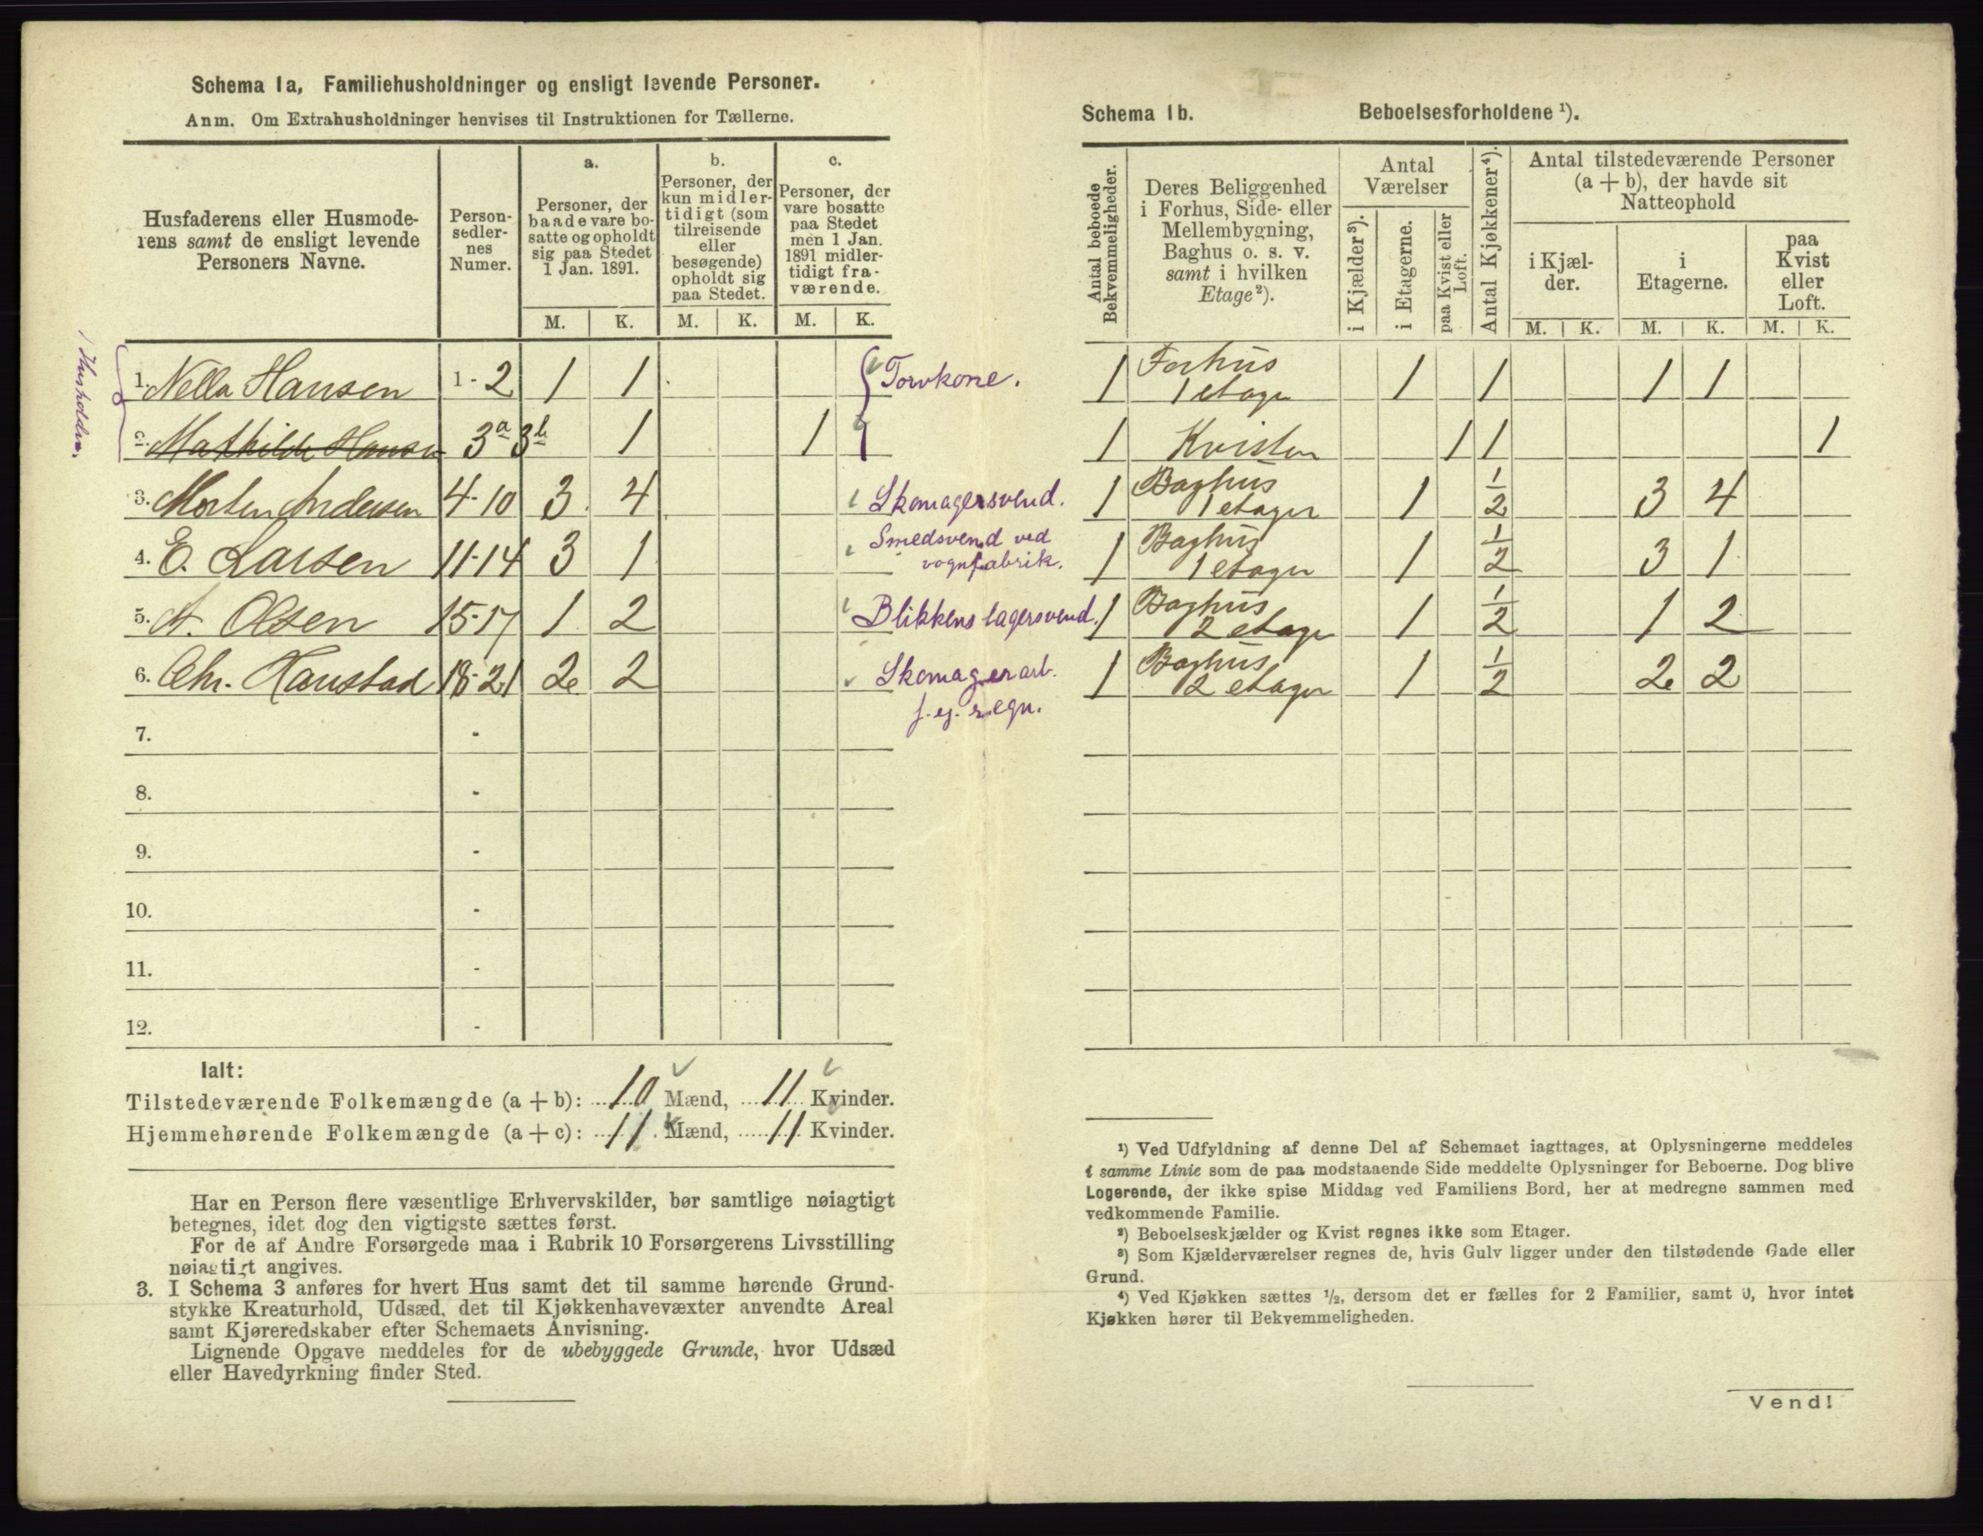 Schema 1a, Familiehusholdninger og ensligt levende Personer.
Anm. Om Extrahusholdninger henvises til Instruktionen for Tællerne.
Husfaderens eller Husmoderens samt de ensligt levende Personers Navne.
Personsedlernes Numer.
a.
Personer, der baade vare bosatte og opholdt sig paa Stedet 1 Jan. 1891.
b.
Personer, der kun midlertidigt (som tilreisende eller besøgende) opholdt sig paa Stedet.
c.
Personer, der vare bosatte paa Stedet men 1 Jan. 1891 midlertidigt fraværende.
M. K. M. K. M. K.
1 Husholdn.
1. Nella Hansen 1-2 1 1 Torvkone.
2. Mathilde Hansen 3a 3b 1 1
3. Morten Andersen 4-10 3 4 Skomagersvend.
4. E. Larsen 11-14 3 1 Smedsvend ved
vognfabrik.
5. A. Olsen 15-17 1 2 Blikkenslagersvend.
6. Chr. Hanstad 18-21 2 2 Skomagerarb.
f. eg. regn.
7. -
8. -
9. -
10. -
11. -
12. -
Ialt:
Tilstedeværende Folkemængde (a + b): 10 Mænd, 11 Kvinder.
Hjemmehørende Folkemængde (a + c): 11 Mænd, 11 Kvinder.
Har en Person flere væsentlige Erhvervskilder, bør samtlige nøiagtigt
betegnes, idet dog den vigtigste sættes først.
For de af Andre Forsørgede maa i Rubrik 10 Forsørgerens Livsstilling
nøiagtigt angives.
3. I Schema 3 anføres for hvert Hus samt det til samme hørende Grund-
stykke Kreaturhold, Udsæd, det til Kjøkkenhavevæxter anvendte Areal
samt Kjøreredskaber efter Schemaets Anvisning.
Lignende Opgave meddeles for de ubebyggede Grunde, hvor Udsæd
eller Havedyrkning finder Sted.
Schema 1b. Beboelsesforholdene ¹).
Antal beboede Bekvemmeligheder.
Deres Beliggenhed i Forhus, Side- eller Mellembygning, Baghus o. s. v. samt i hvilken Etage ²).
Antal Værelser
i Kjælder ³).
i Etagerne.
paa Kvist eller Loft.
Antal Kjøkkener ⁴).
Antal tilstedeværende Personer (a + b), der havde sit Natteophold
i Kjælder.
i Etagerne.
paa Kvist eller Loft.
M. K. M. K. M. K.
1 Forhus
1 etager 1 1 1 1
1 Kvisten 1 1 1
1 Baghus
1 etager 1 1/2 3 4
1 Baghus
1 etager 1 1/2 3 1
1 Baghus
2 etager 1 1/2 1 2
1 Baghus
2 etager 1 1/2 2 2
¹) Ved Udfyldning af denne Del af Schemaet iagttages, at Oplysningerne meddeles
i samme Linie som de paa modstaaende Side meddelte Oplysninger for Beboerne. Dog blive
Logerende, der ikke spise Middag ved Familiens Bord, her at medregne sammen med
vedkommende Familie.
²) Beboelseskjælder og Kvist regnes ikke som Etager.
³) Som Kjælderværelser regnes de, hvis Gulv ligger under den tilstødende Gade eller
Grund.
⁴) Ved Kjøkken sættes ½, dersom det er fælles for 2 Familier, samt 0, hvor intet
Kjøkken hører til Bekvemmeligheden.
Vend!